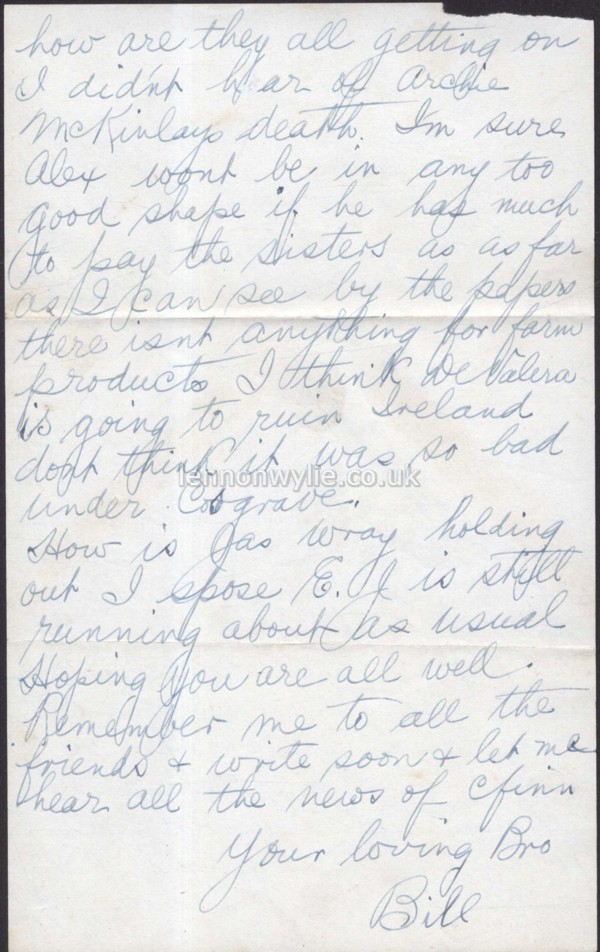 how are they all getting on
I didn't hear of Archie
McKinlays death. I'm sure
Alex wont be in any too
good shape if he has much
to pay the sisters as as far
as I can see by the papers
there isnt anything for farm
products I think DeValera
is going to ruin Ireland
dont think it was so bad
lennonwylie.co.uk
under Cosgrave.
How is Jas Wray holding
out I spose E. J is still
running about as usual
Hoping you are all well.
Remember me to all the
friends & write soon & let me
hear all the news of Cfinn
Your loving Bro
Bill